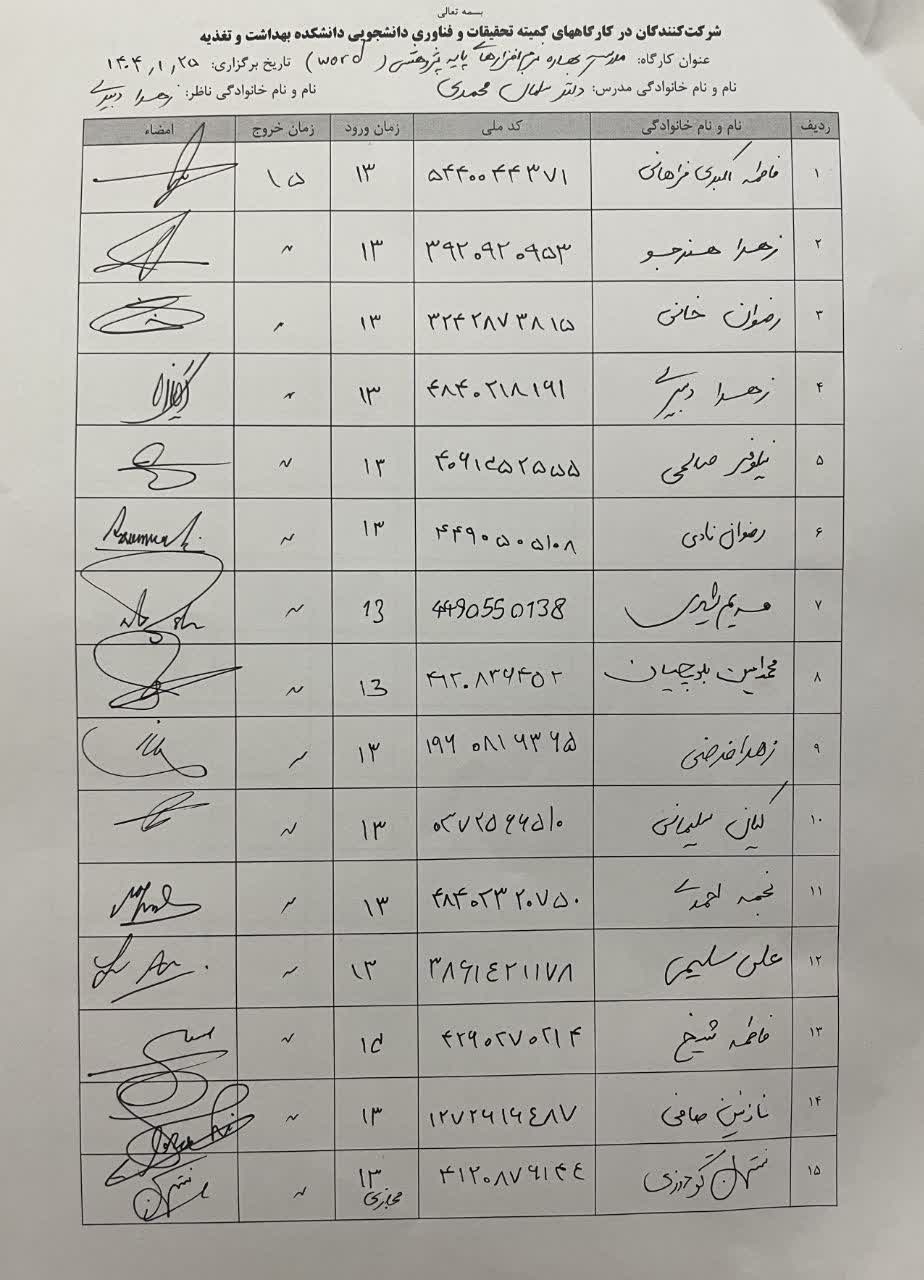 بسمه تعالی
شرکت‌کنندگان در کارگاههای کمیته تحقیقات و فناوری دانشجویی دانشکده بهداشت و تغذیه
عنوان کارگاه: مدرسه بهاره نرم افزارهای پایه پژوهشی (word) تاریخ برگزاری: ۱۴۰۴,۱,۲۵
نام و نام خانوادگی مدرس: دکتر سلمان محمدی نام و نام خانوادگی ناظر: زهرا دبیری
ردیف نام و نام خانوادگی کد ملی زمان ورود زمان خروج امضاء
۱ فاطمه اکبری فراهانی ۵۴۴۰۰۴۴۳۷۱ ۱۳ ۱۵
۲ زهرا هنرجو ۳۹۲۰۹۲۰۹۵۳ ۱۳ "
۳ رضوان خانی ۳۲۴۲۸۷۳۸۱۵ ۱۳ "
۴ زهرا دبیری ۴۸۴۰۲۱۸۱۹۱ ۱۳ "
۵ نیلوفر صالحی ۱۳ "
۶ رضوان نادی ۴۴۹۰۵۰۵۱۰۸ ۱۳ "
۷ مریم 4490550138 13 "
۸ محمدامین بلوچیان ۴۶۲۰۸۳۶۴۵۲ 13 "
۹ زهرا فرضی ۱۹۶۰۸۱۶۳۶۵ ۱۳ "
۱۰ کیان سلیمانی ۰۲۷۲۵۶۶۵۱۰ ۱۳ "
۱۱ نجمه احمدی ۴۸۴۰۲۳۲۰۷۵۰ ۱۳ "
۱۲ علی سلیمی ۳۸۶۱۴۲۱۱۷۸ ۱۳ "
۱۳ فاطمه شیخ ۴۲۶۰۲۷۰۲۱۴ "
۱۴ نازنین صافی ۱۲۷۲۶۱۶۴۸۷ ۱۳ "
۱۵ نسترن گودرزی ۴۱۲۰۸۷۶۱۴۴ ۱۳ مجازی " نسترن